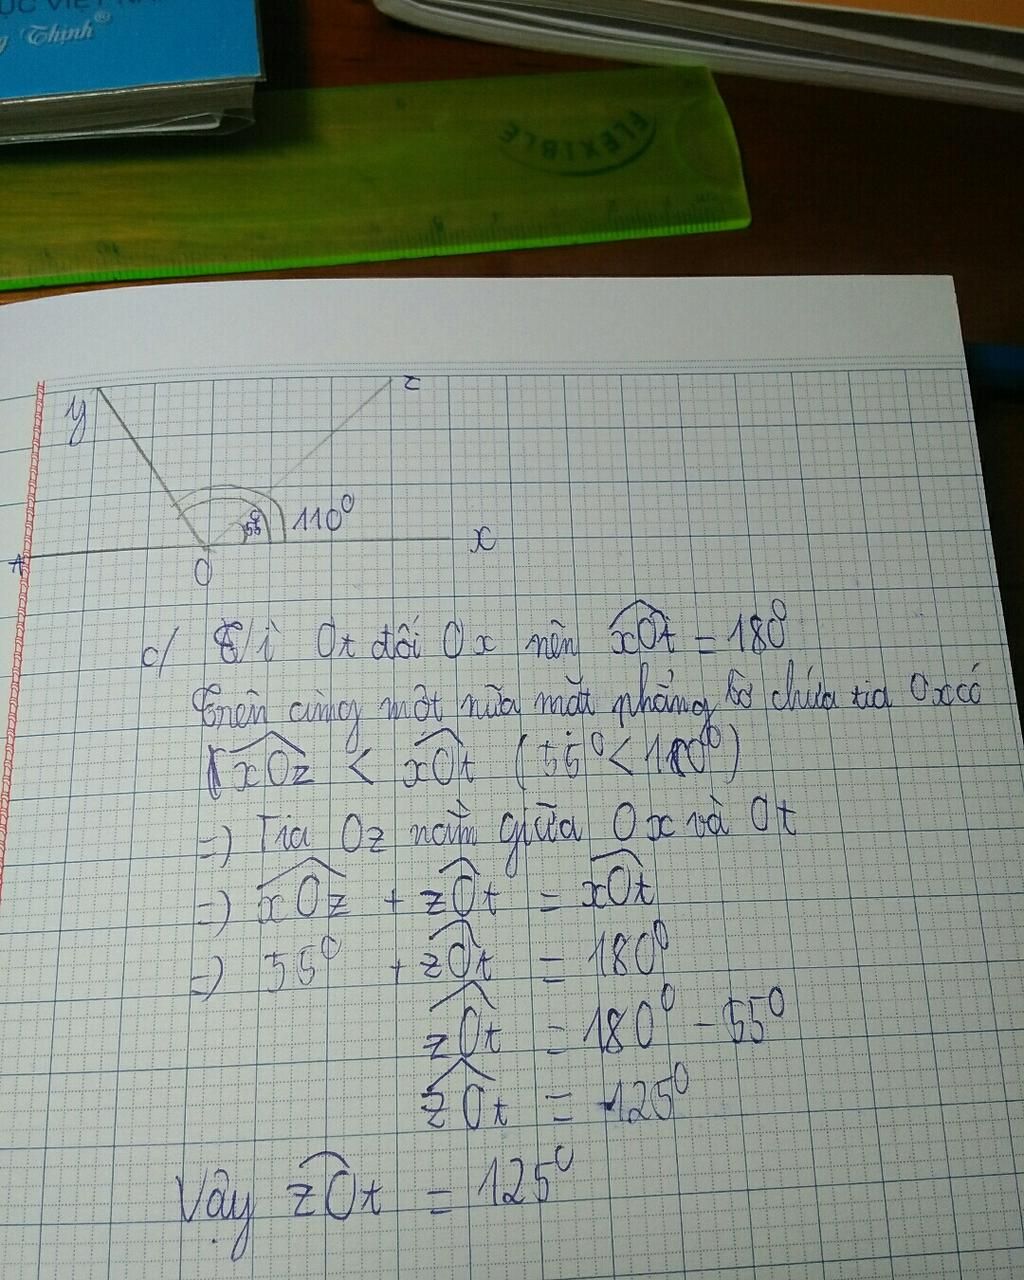 ỤC VIỆT NA
g Thịnh®
FLEXIBLE
z
y
55
110⁰
t
O
x
c/ Vì Ot đối Ox nên xOt = 180⁰
Trên cùng một nửa mặt phẳng bờ chứa tia Ox có
xOz < xOt (55⁰ < 180⁰)
=) Tia Oz nằm giữa Ox và Ot
=) xOz + zOt = xOt
=) 55⁰ + zOt = 180⁰
zOt = 180⁰ - 55⁰
zOt = 125⁰
Vậy zOt = 125⁰